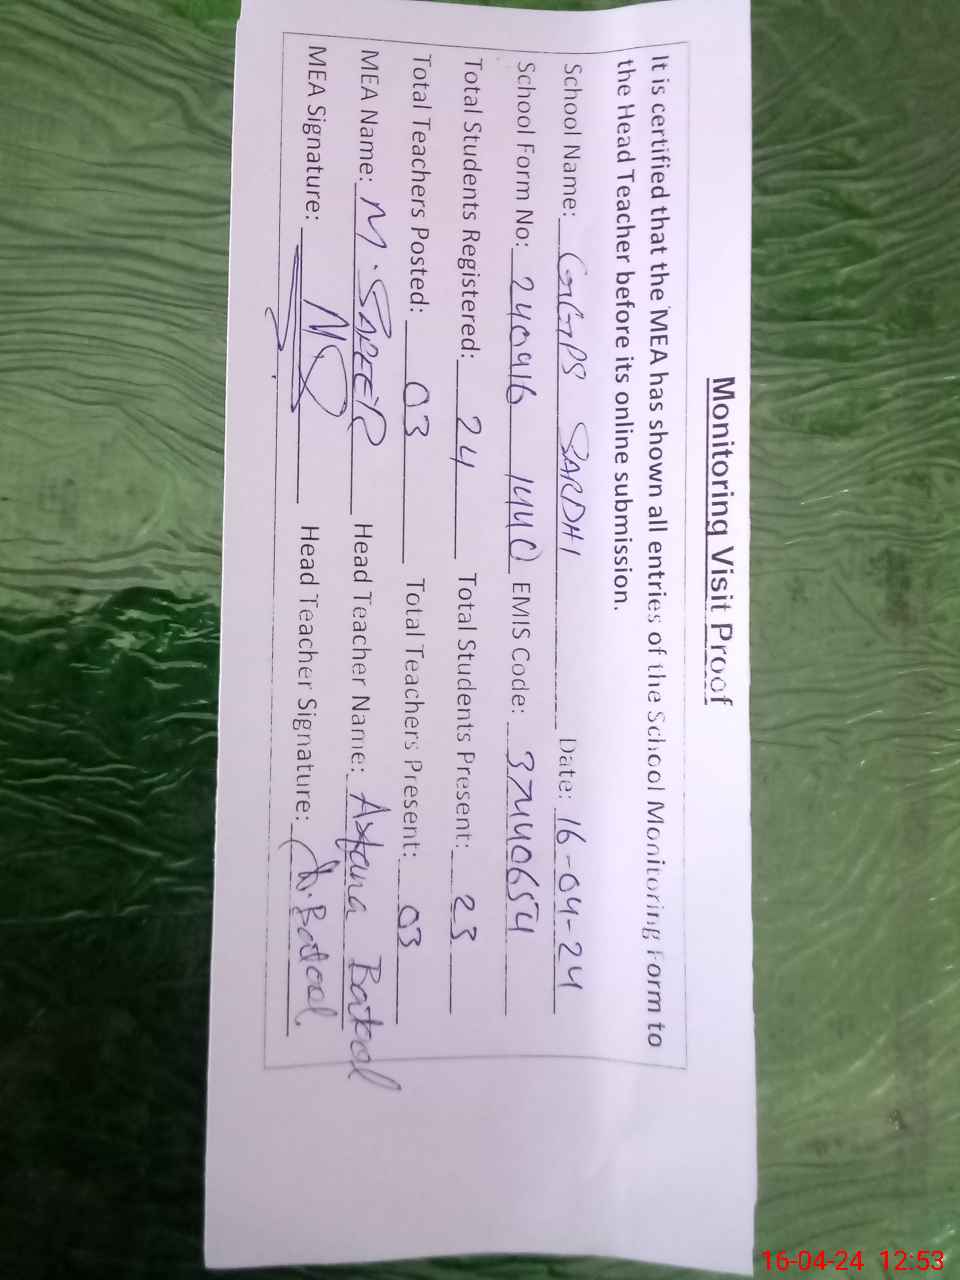 Monitoring Visit Proof
It is certified that the MEA has shown all entries of the School Monitoring Form to
the Head Teacher before its online submission.
School Name: GGPS SARDHI Date: 16-04-24
School Form No: 240416 144 EMIS Code: 37440654
Total Students Registered: 24 Total Students Present: 23
Total Teachers Posted: 03 Total Teachers Present: 03
MEA Name: M. SAFEER Head Teacher Name: Batool
MEA Signature: Head Teacher Signature: Batool
16-04-24 12:53